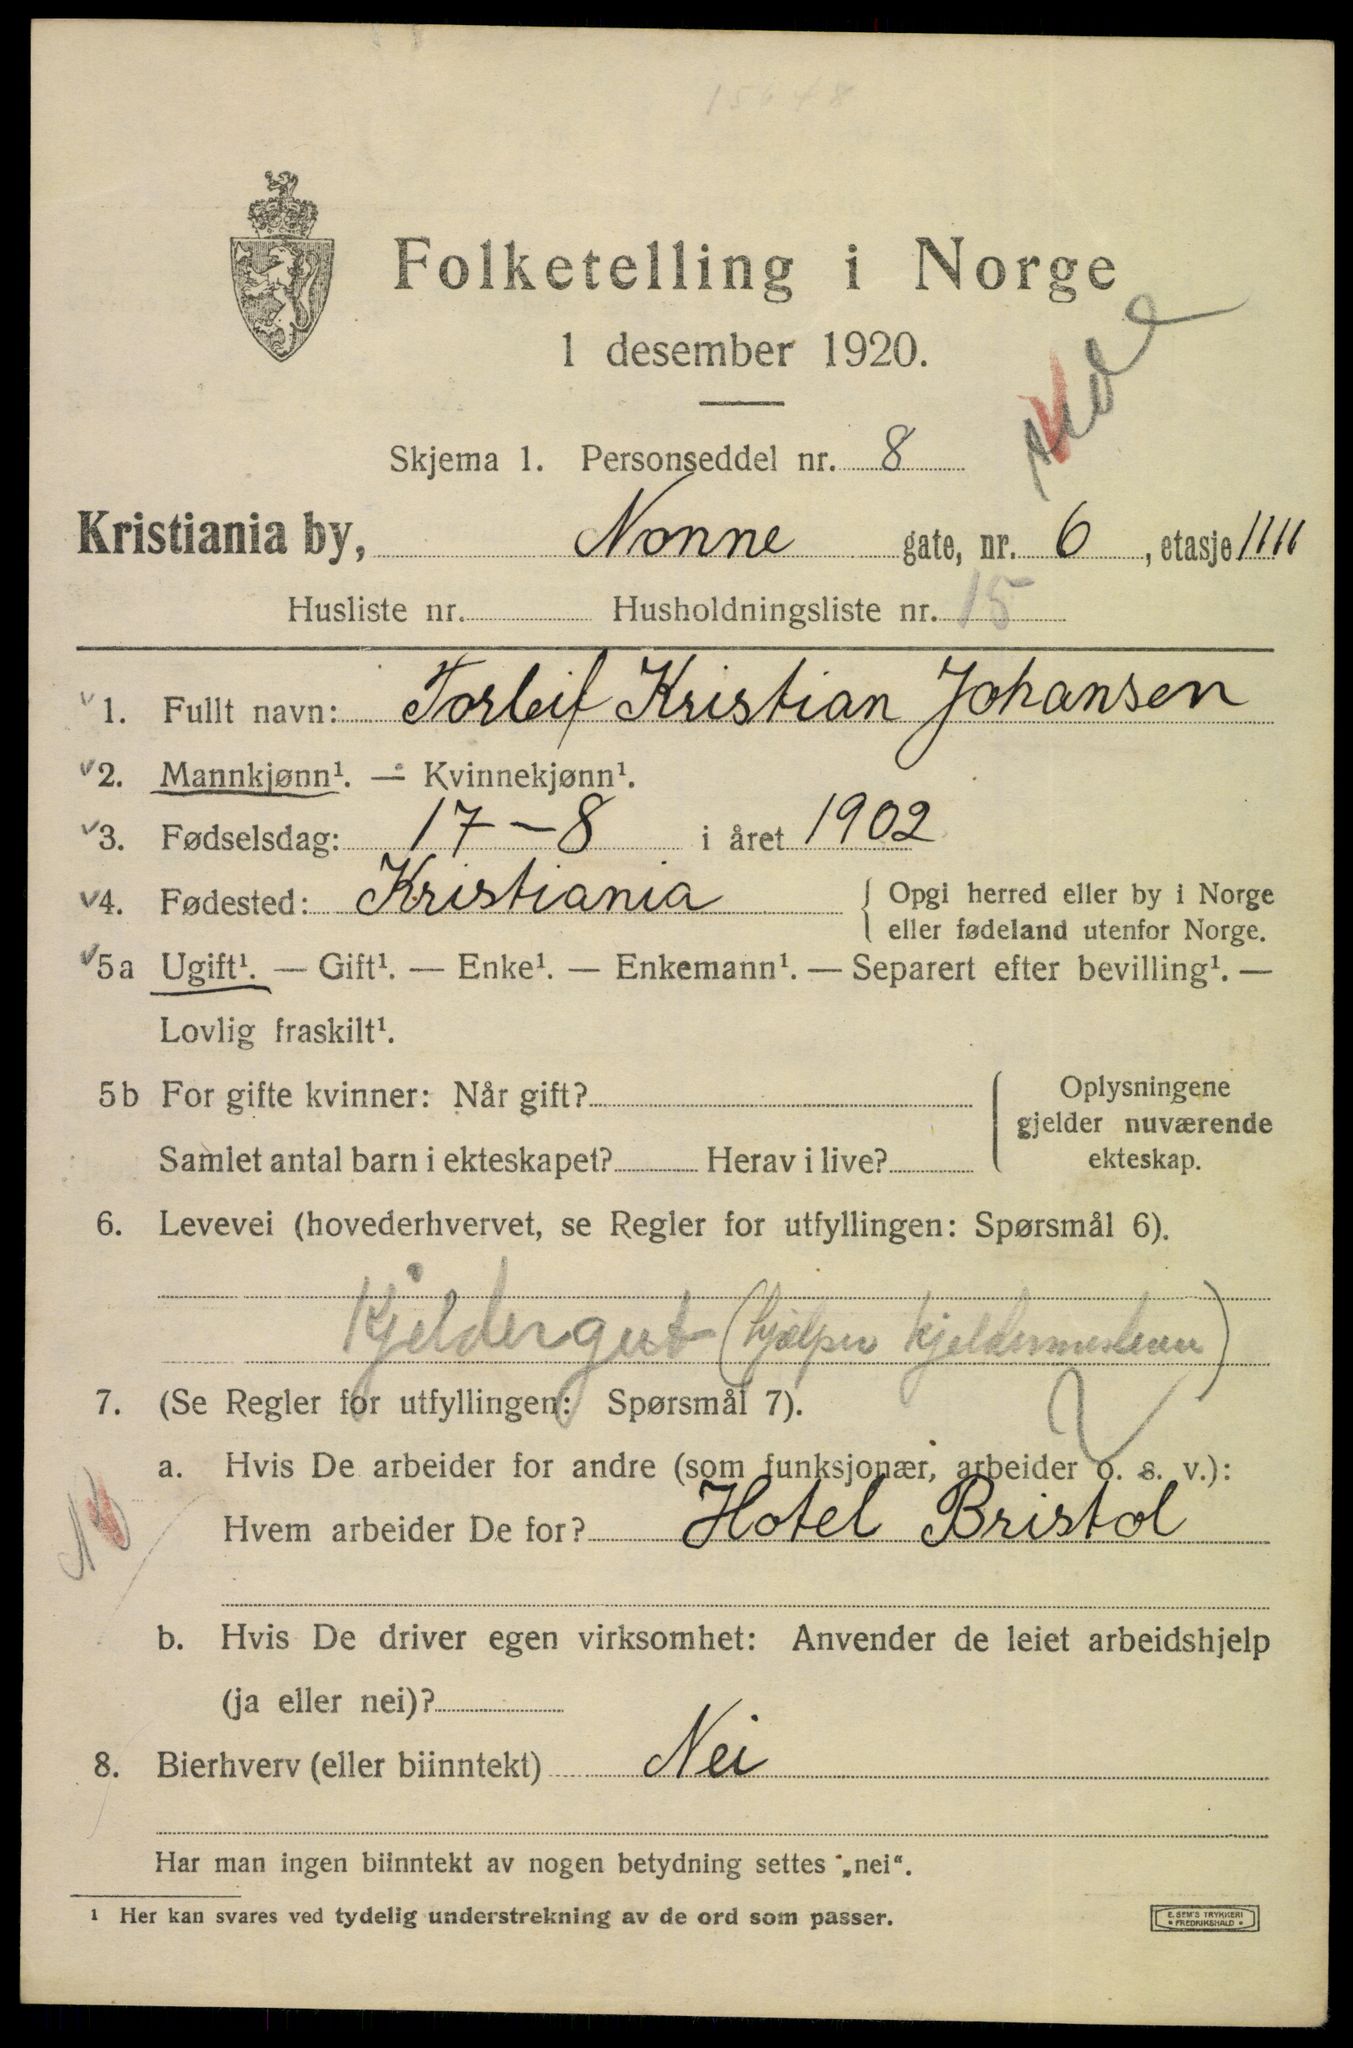 15648
Folketelling i Norge
1 desember 1920.
Skjema 1. Personseddel nr. 8
Kristiania by, Nonne gate, nr. 6, etasje IIII
Husliste nr. Husholdningsliste nr. 15
1. Fullt navn: Torleif Kristian Johansen
2. Mannkjønn¹. — Kvinnekjønn¹.
3. Fødselsdag: 17-8 i året 1902
4. Fødested: Kristiania { Opgi herred eller by i Norge
eller fødeland utenfor Norge.
5a Ugift¹. — Gift¹. — Enke¹. — Enkemann¹. — Separert efter bevilling¹. —
Lovlig fraskilt¹.
5b For gifte kvinner: Når gift?
Samlet antal barn i ekteskapet? Herav i live?
Oplysningene
gjelder nuværende
ekteskap.
6. Levevei (hovederhvervet, se Regler for utfyllingen: Spørsmål 6).
Kjeldergut (hjælper kjeldermesteren)
7. (Se Regler for utfyllingen: Spørsmål 7).
a. Hvis De arbeider for andre (som funksjonær, arbeider o. s. v.):
Hvem arbeider De for? Hotel Bristol
b. Hvis De driver egen virksomhet: Anvender de leiet arbeidshjelp
(ja eller nei)?
8. Bierhverv (eller biinntekt) Nei
Har man ingen biinntekt av nogen betydning settes „nei“.
¹ Her kan svares ved tydelig understrekning av de ord som passer.
E. SEM'S TRYKKERI
FREDRIKSHALD